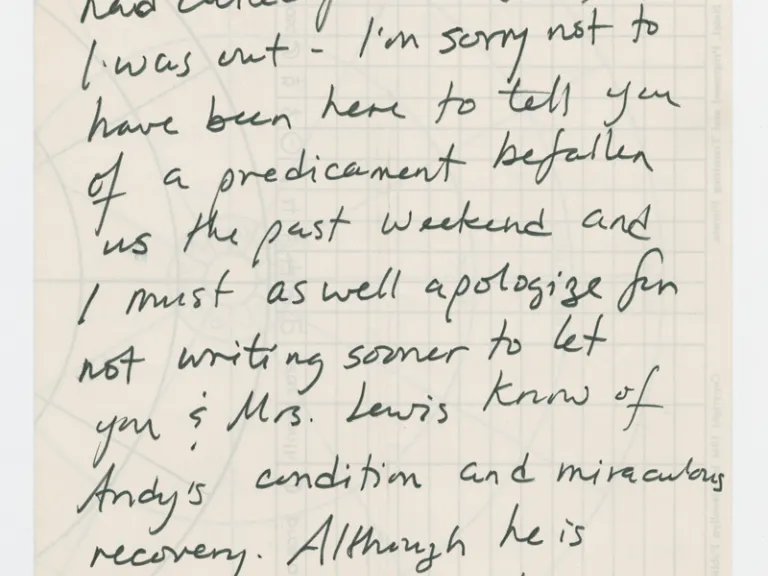 had called
I was out - I'm sorry not to
have been here to tell you
of a predicament befallen
us the past weekend and
I must as well apologize for
not writing sooner to let
you & Mrs. Lewis know of
Andy's condition and miraculous
recovery. Although he is